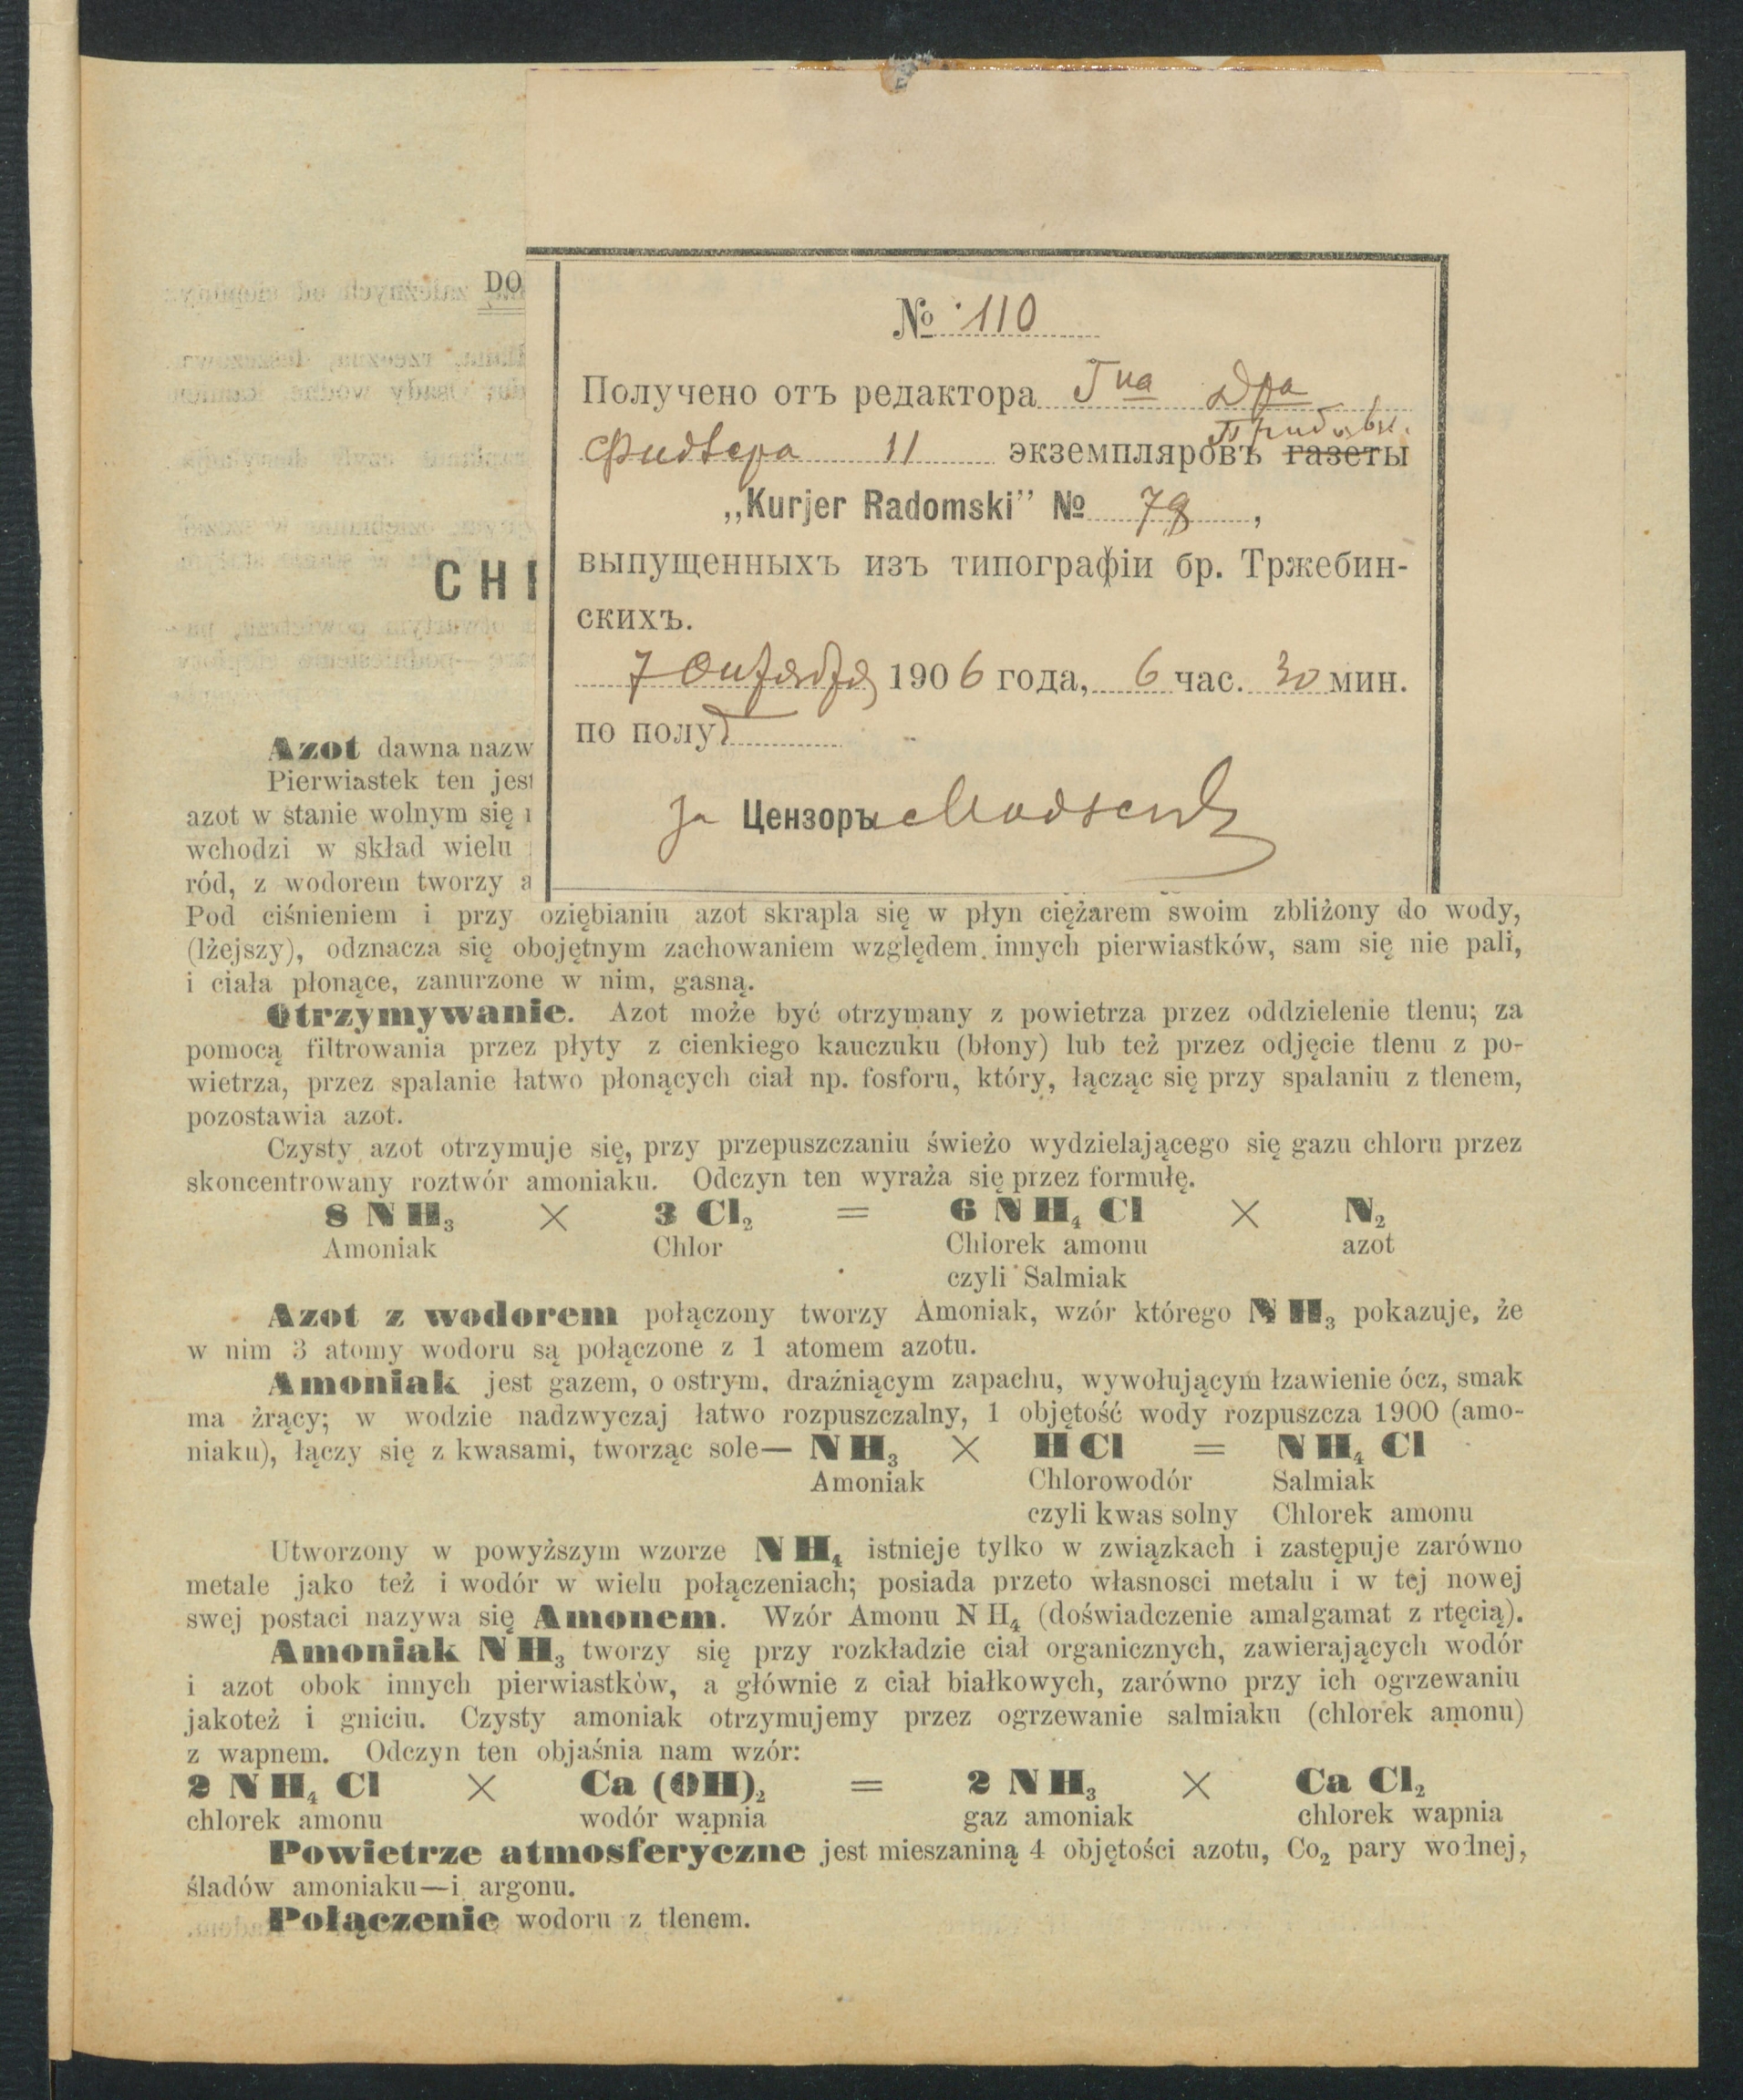 DO
CHI
№ 110
Получено отъ редактора Гна Дра
Фидлера 11 экземпляровъ газеты
„Kurjer Radomski” № 78,
выпущенныхъ изъ типографіи бр. Тржебин-
скихъ.
7 Октября 1906 года, 6 час. 30 мин.
по полуд
за Цензоръ
Azot dawna nazw
Pierwiastek ten jest
azot w stanie wolnym się
wchodzi w skład wielu
ród, z wodorem tworzy a
Pod ciśnieniem i przy oziębianiu azot skrapla się w płyn ciężarem swoim zbliżony do wody,
(lżejszy), odznacza się obojętnym zachowaniem względem innych pierwiastków, sam się nie pali,
i ciała płonące, zanurzone w nim, gasną.
Otrzymywanie. Azot może być otrzymany z powietrza przez oddzielenie tlenu; za
pomocą filtrowania przez płyty z cienkiego kauczuku (błony) lub też przez odjęcie tlenu z po-
wietrza, przez spalanie łatwo płonących ciał np. fosforu, który, łącząc się przy spalaniu z tlenem,
pozostawia azot.
Czysty azot otrzymuje się, przy przepuszczaniu świeżo wydzielającego się gazu chloru przez
skoncentrowany roztwór amoniaku. Odczyn ten wyraża się przez formułę.
8 N H₃ × 3 Cl₂ = 6 N H₄ Cl × N₂
Amoniak Chlor Chlorek amonu azot
czyli Salmiak
Azot z wodorem połączony tworzy Amoniak, wzór którego N H₃ pokazuje, że
w nim 3 atomy wodoru są połączone z 1 atomem azotu.
Amoniak jest gazem, o ostrym, drażniącym zapachu, wywołującym łzawienie ócz, smak
ma żrący; w wodzie nadzwyczaj łatwo rozpuszczalny, 1 objętość wody rozpuszcza 1900 (amo-
niaku), łączy się z kwasami, tworząc sole— N H₃ × H Cl = N H₄ Cl
Amoniak Chlorowodór Salmiak
czyli kwas solny Chlorek amonu
Utworzony w powyższym wzorze N H₄ istnieje tylko w związkach i zastępuje zarówno
metale jako też i wodór w wielu połączeniach; posiada przeto własnosci metalu i w tej nowej
swej postaci nazywa się Amonem. Wzór Amonu N H₄ (doświadczenie amalgamat z rtęcią).
Amoniak N H₃ tworzy się przy rozkładzie ciał organicznych, zawierających wodór
i azot obok innych pierwiastków, a głównie z ciał białkowych, zarówno przy ich ogrzewaniu
jakoteż i gniciu. Czysty amoniak otrzymujemy przez ogrzewanie salmiaku (chlorek amonu)
z wapnem. Odczyn ten objaśnia nam wzór:
2 N H₄ Cl × Ca (OH)₂ = 2 N H₃ × Ca Cl₂
chlorek amonu wodór wapnia gaz amoniak chlorek wapnia
Powietrze atmosferyczne jest mieszaniną 4 objętości azotu, Co₂ pary wodnej,
śladów amoniaku—i argonu.
Połączenie wodoru z tlenem.